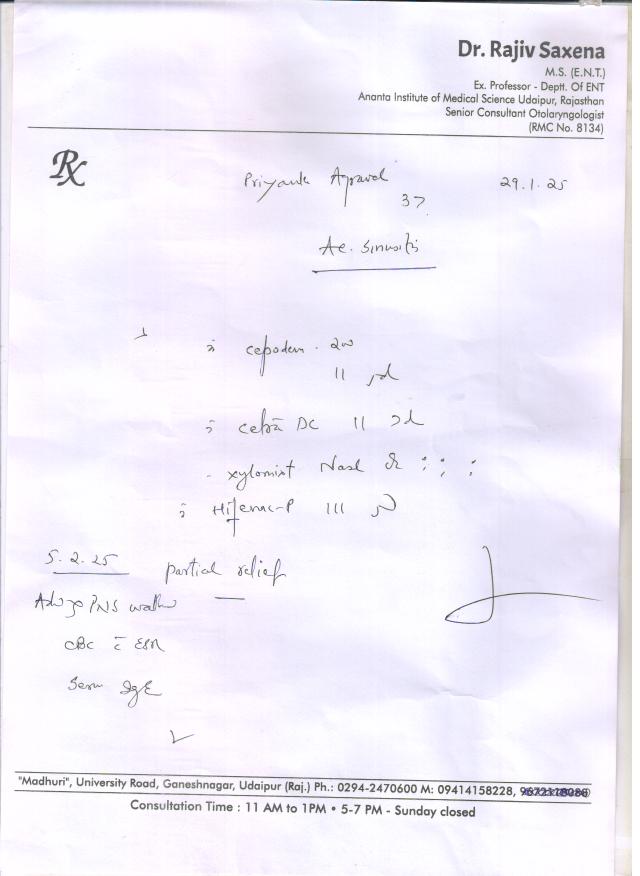 Dr. Rajiv Saxena
M.S. (E.N.T.)
Ex. Professor - Deptt. Of ENT
Ananta Institute of Medical Science Udaipur, Rajasthan
Senior Consultant Otolaryngologist
(RMC No. 8134)
Rx
29.1.25
37
Ac. Sinusitis
cepodem . 200
11
DC 11
- xylomist Nasl
Hifenac-P 111
5.2.25 partial relief
PNS
CBC c̄ ESR
Serum IgE
"Madhuri", University Road, Ganeshnagar, Udaipur (Raj.) Ph.: 0294-2470600 M: 09414158228,
Consultation Time : 11 AM to 1PM • 5-7 PM - Sunday closed